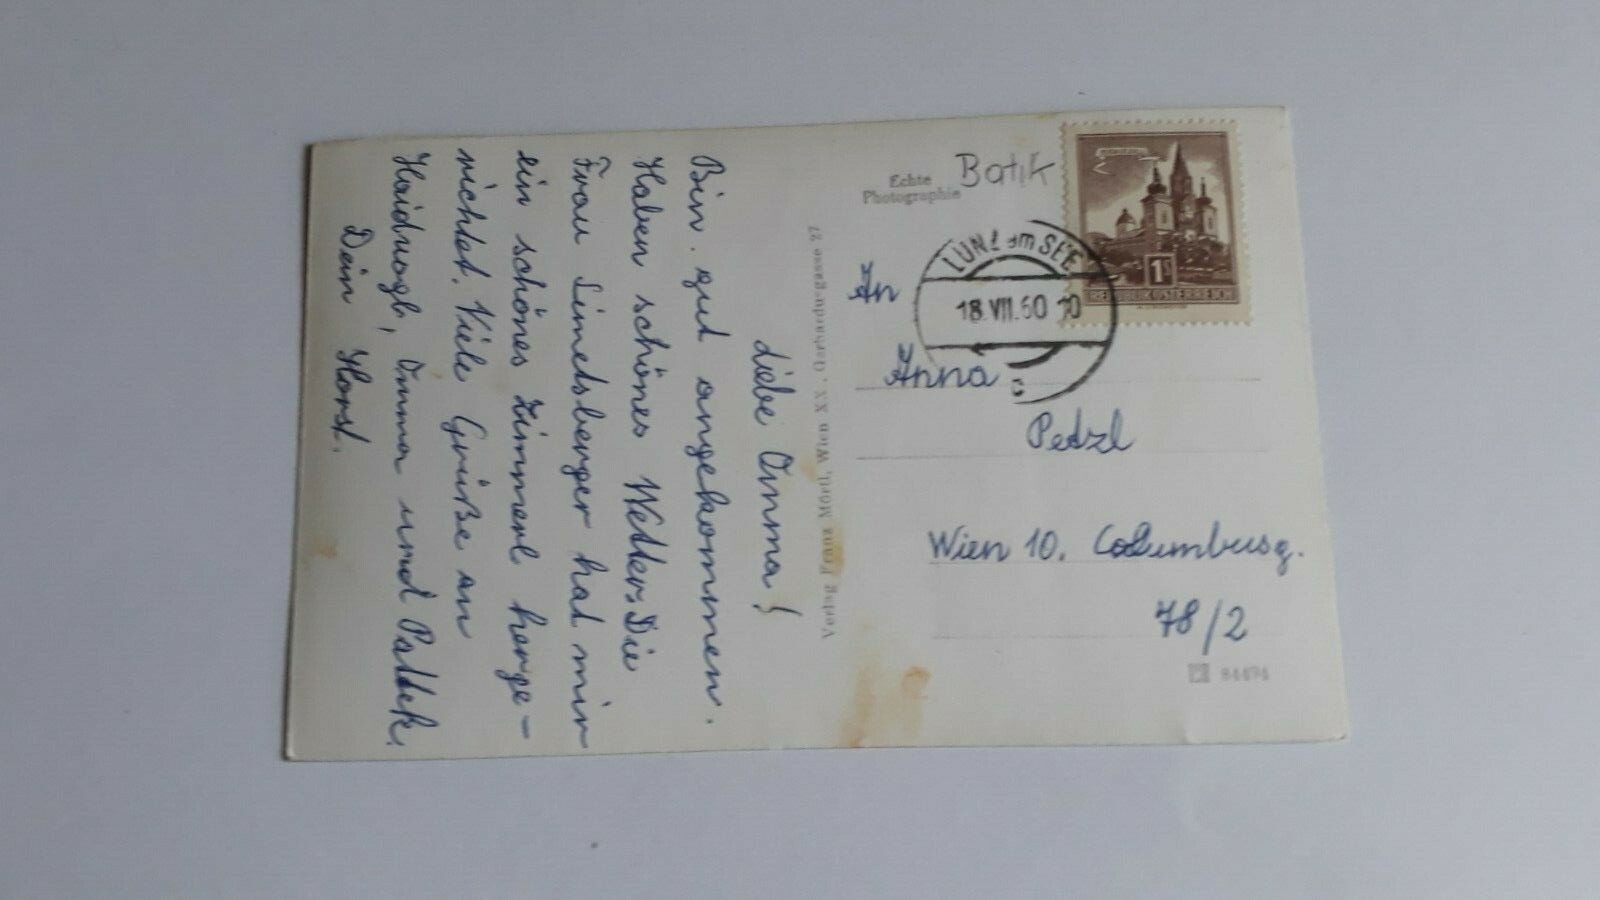 Liebe Omma!
Bin gut angekommen.
Haben schönes Wetter. Die
Frau Simetsberger hat mir
ein schönes Zimmerl herge-
richtet. Viele Grüße an
Haidvogl, Omma und Pattek.
Dein Horst.
Verlag Franz Mörtl, Wien XX., Gerhardusgasse 27
Echte
Photographie
Batik
LUNZ am SEE
18.VII.60 10
c
1S
REPUBLIK ÖSTERREICH
An
Anna
Petzl
Wien 10. Columbusg.
78/2
84494